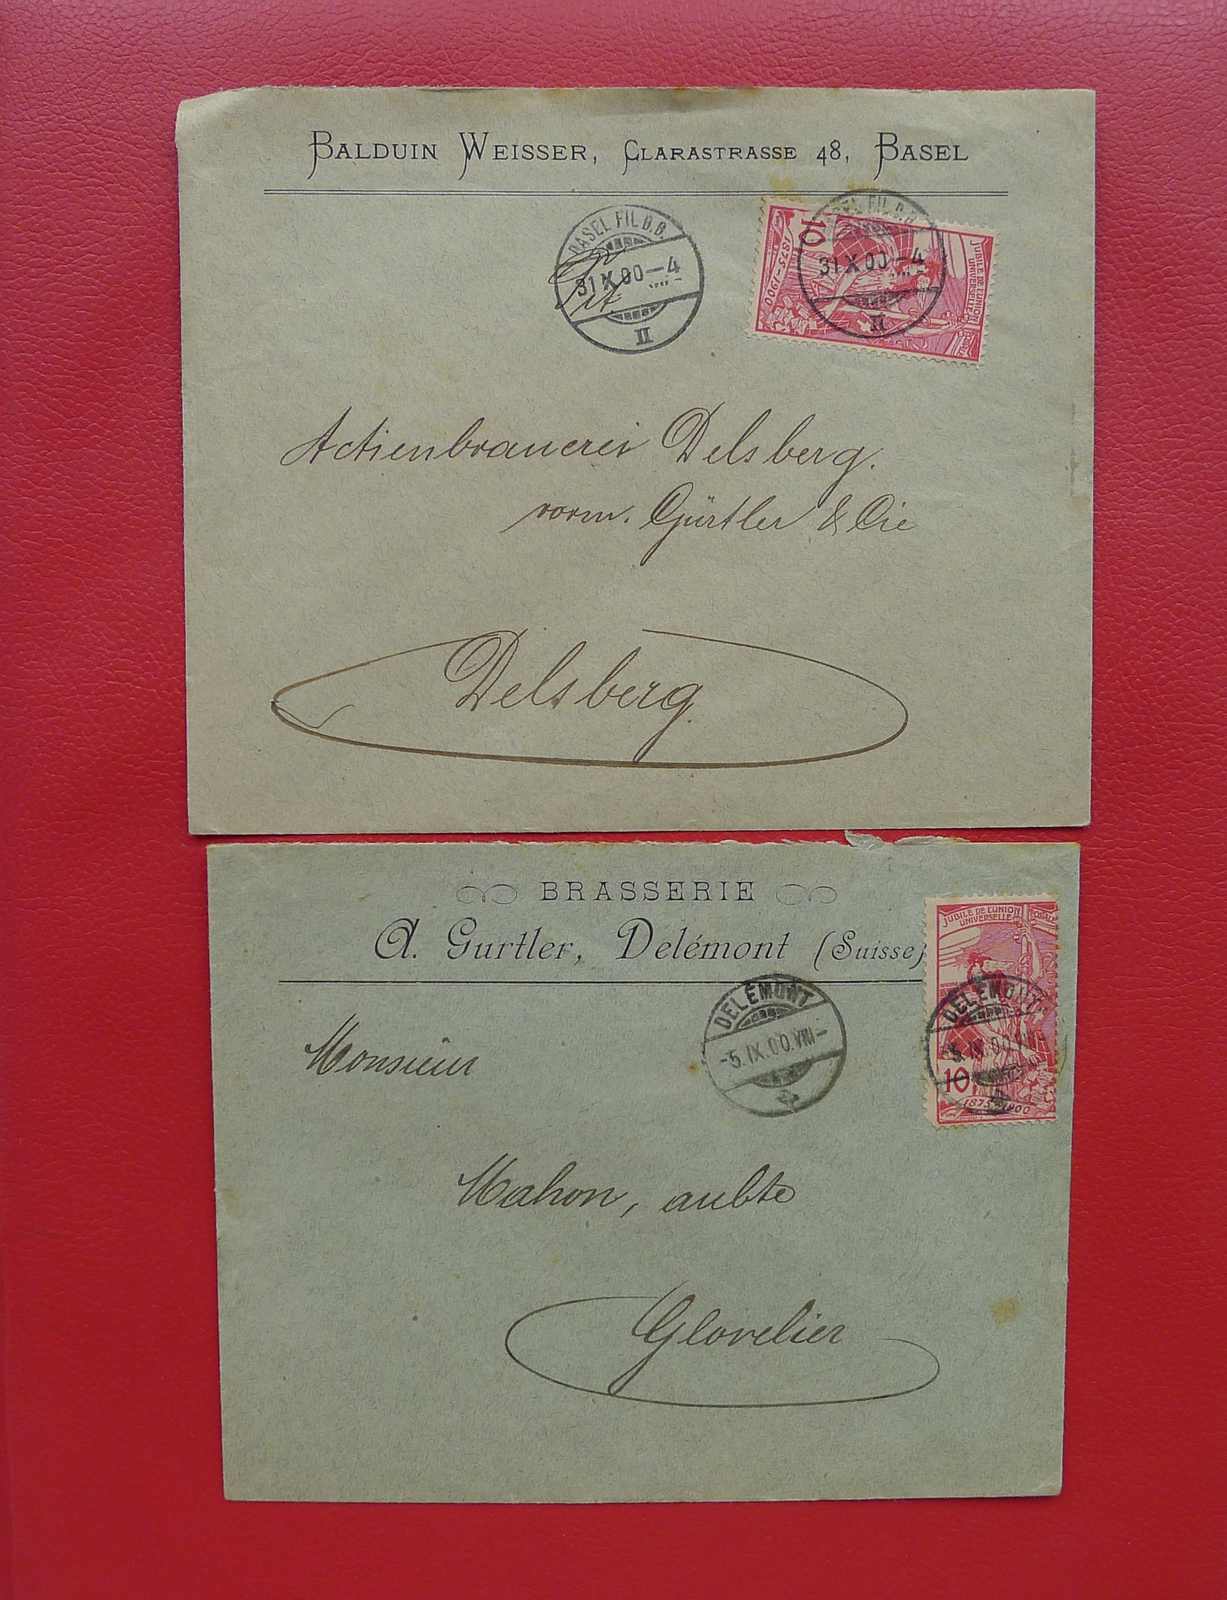 BALDUIN WEISSER, CLARASTRASSE 48, BASEL
BASEL FIL. B.B.
31 X 00-4
II
10
1875-1900
JUBILÉ DE L'UNION
UNIVERSELLE
FIL. B.B.
31 X 00-4
II
Actienbrauerei Delsberg.
vorm. Gürtler & Cie
Delsberg
BRASSERIE
A. Gurtler, Delémont (Suisse)
JUBILÉ DE L'UNION
UNIVERSELLE
DELÉMONT
-5.IX.00.VIII-
DELÉMONT
5.IX.00.VIII-
10
1875-1900
Monsieur
Mahon, aubte
Glovelier